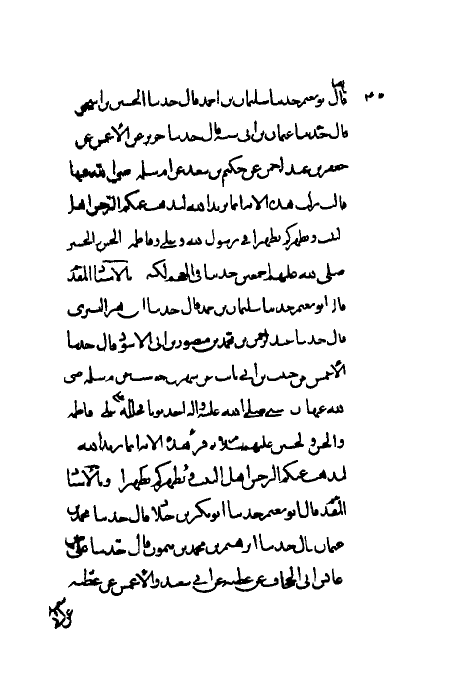 قال ابو نعيم حدثنا سليمان بن احمد قال حدثنا الحسين بن اسحق
قال حدثنا عثمان بن ابى شيبة قال حدثنا جرير عن الاعمش عن
جعفر بن عبد الرحمن عن حكيم بن سعد عن ام سلمه رضى الله عنها
قالت نزلت هذه الاية انما يريد الله ليذهب عنكم الرجس اهل
البيت ويطهركم تطهيرا فى رسول الله وعلى وفاطمه الحسن والحسين
صلى الله عليهم اجمعين وبالاسناد المقدم
قال ابو نعيم حدثنا سليمان بن احمد قال حدثنا السرى
قال حدثنا عبد الرحمن بن محمد بن منصور بن ابى الاسود قال حدثنا
الاعمش عن حبيب بن ابى ثابت عن شهر بن حوشب عن ام سلمه رضى
الله عنها ان النبى صلى الله عليه واله اخذ ثوبا فجلله على فاطمه
والحسن والحسين عليهم السلام وقرأ هذه الاية انما يريد الله
ليذهب عنكم الرجس اهل البيت ويطهركم تطهيرا وبالاسناد
المقدم قال ابو نعيم حدثنا ابو بكر بن خلاد قال حدثنا محمد بن
عثمان قال حدثنا ابرهيم بن محمد بن ميمون قال حدثنا على بن
عابس عن ابى الجحاف عن عطيه عن ابى سعيد والاعمش عن عطيه